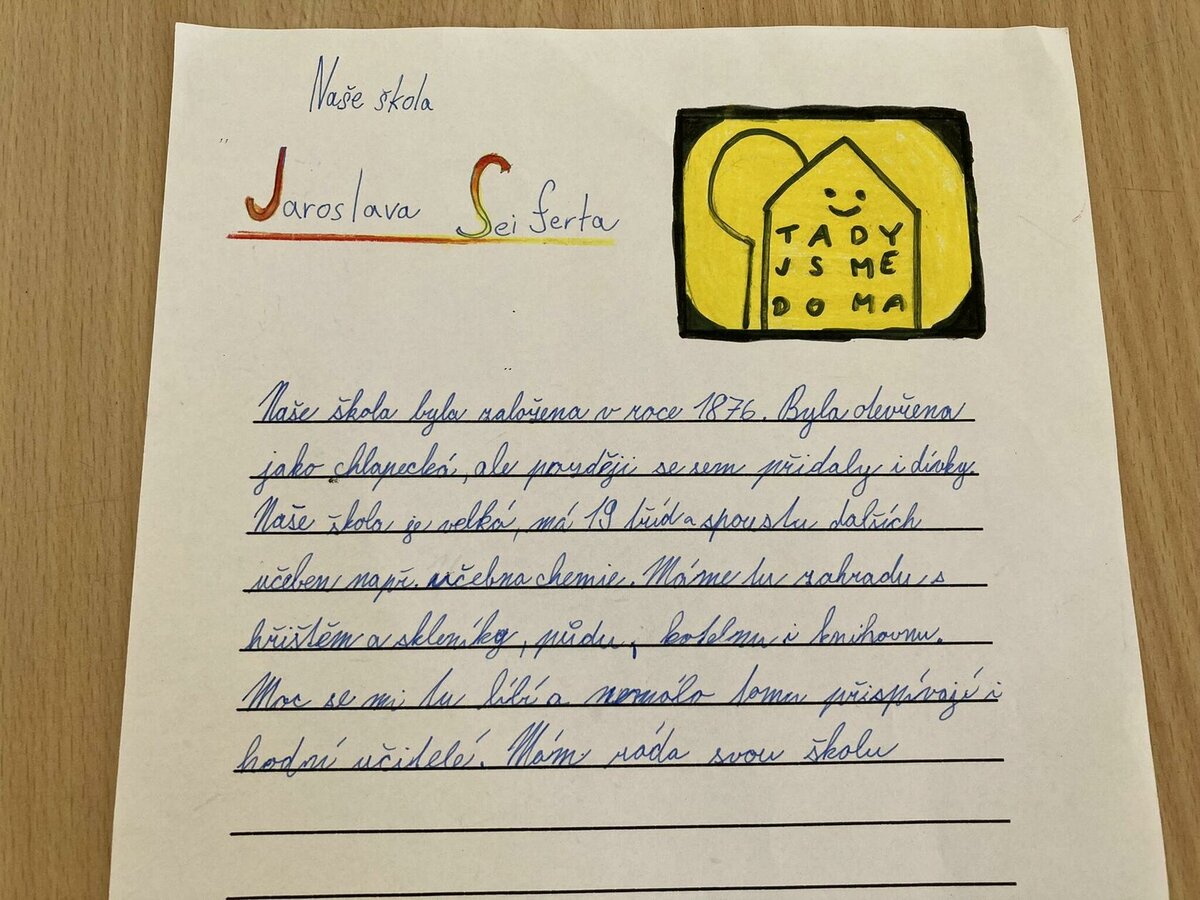 Naše škola
Jaroslava Seiferta
TADY
JSME
DOMA
Naše škola byla založena v roce 1876. Byla otevřena
jako chlapecká, ale později se sem přidaly i dívky.
Naše škola je velká, má 19 tříd a spoustu dalších
učeben např. učebna chemie. Máme tu zahradu s
hřištěm a skleníky, půdu, kotelnu i knihovnu.
Moc se mi tu líbí a nemálo tomu přispívají i
hodní učitelé. Mám ráda svou školu